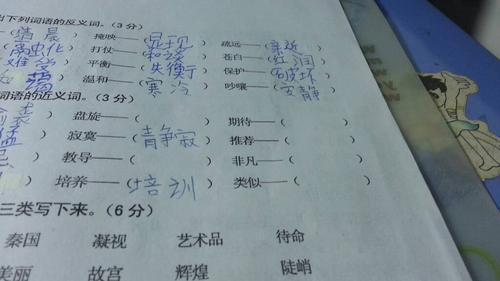 出下列词语的反义词。(3 分)
晨 ) 掩映——(显现 ) 疏远——(亲近
) 打仗——(和谈 ) 苍白——(红润
) 平衡——(失衡 ) 保护——(破坏
) 温和——(寒冷 ) 吵嚷——(安静
词语的近义词。(3 分)
) 盘旋——( ) 期待——(
) 寂寞——(青静寂 ) 推荐——(
) 教导——( ) 非凡——(
) 培养——(培训 ) 类似——(
三类写下来。(6 分)
秦国 凝视 艺术品 待命
美丽 故宫 辉煌 陡峭